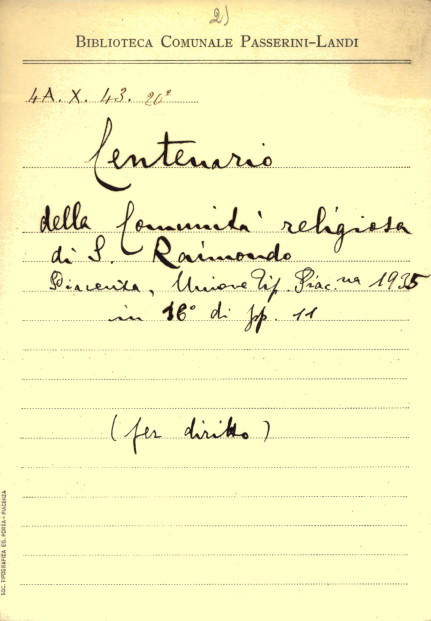 2)
BIBLIOTECA COMUNALE PASSERINI-LANDI
4A. X. 43. 20°
Centenario
della Comunità religiosa
di S. Raimondo
Piacenza, Unione Tip. Piac.na 1935
in 16° di pp. 11
(per diritto)
SOC. TIPOGRAFICA ED. PORTA - PIACENZA